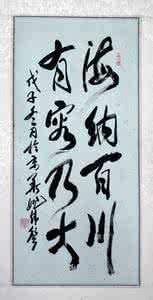 海纳百川
有容乃大
戊子冬月